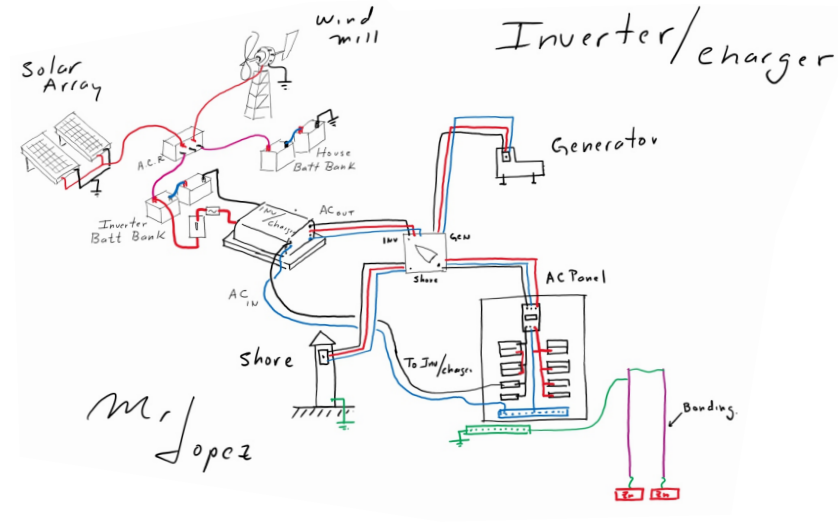 Inverter/charger
Wind
mill
Solar
Array
A.C.R
House
Batt Bank
Generator
Inverter
Batt Bank
INV/
charger
AC OUT
INV
GEN
Shore
AC Panel
AC IN
Shore
To Inv/charger
Mr Lopez
Bonding.
Zn
Zn